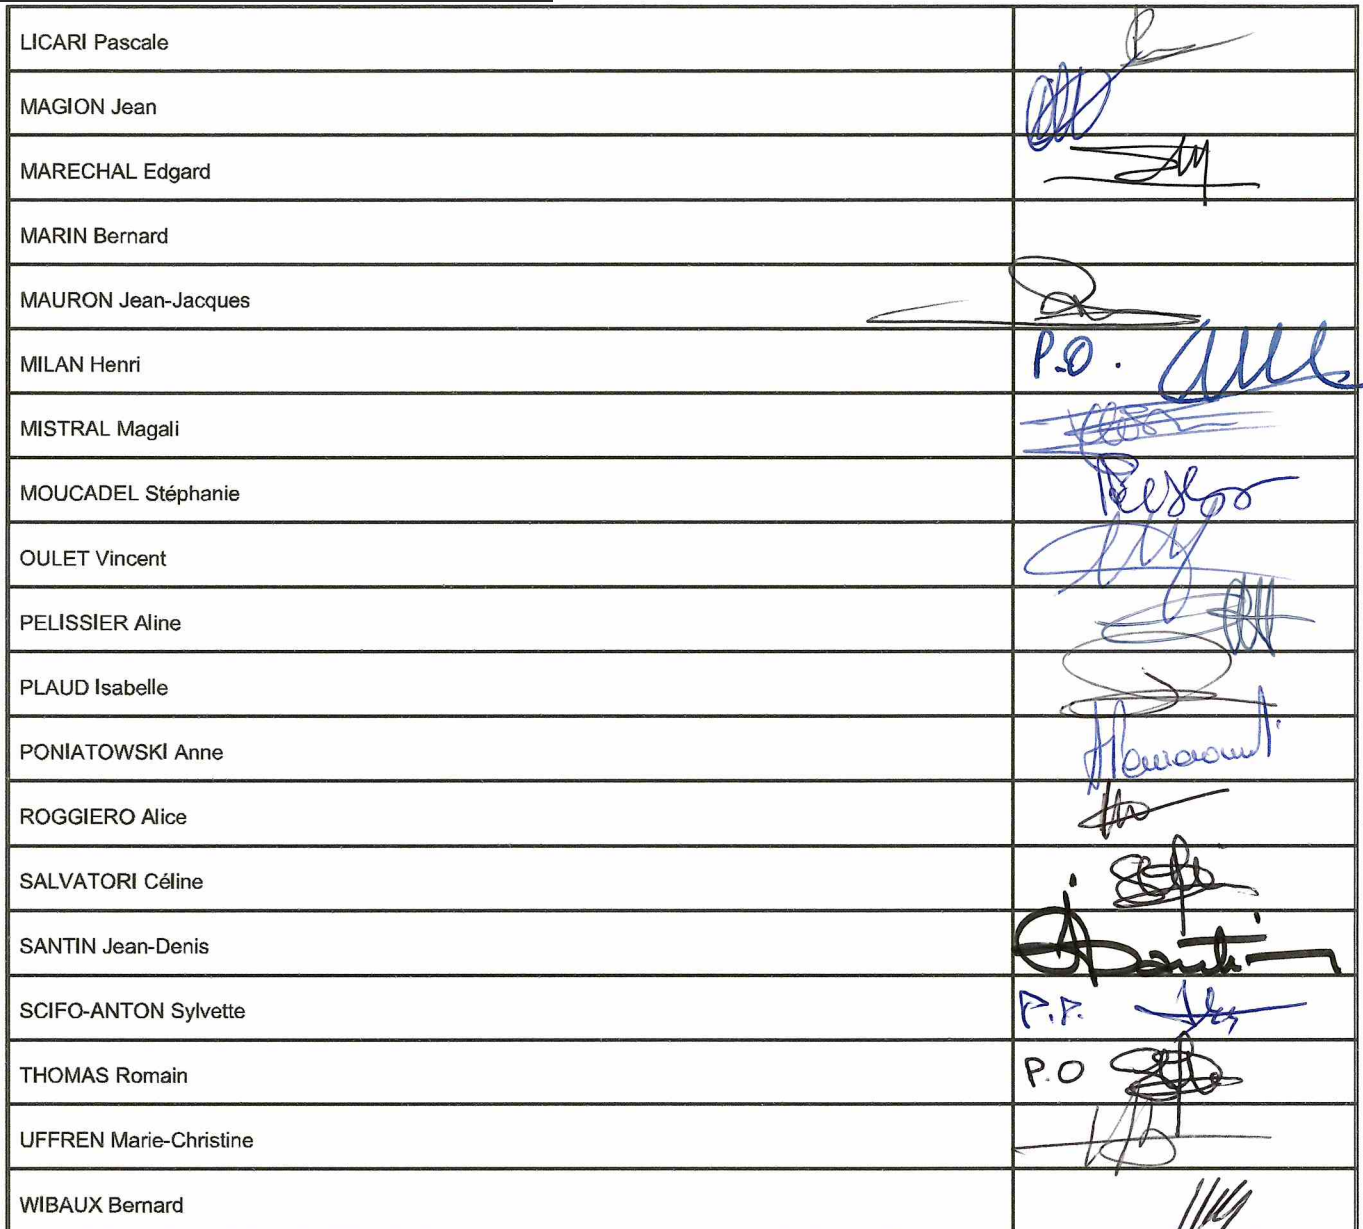 LICARI Pascale
MAGION Jean
MARECHAL Edgard
MARIN Bernard
MAURON Jean-Jacques
MILAN Henri P.O.
MISTRAL Magali
MOUCADEL Stéphanie
OULET Vincent
PELISSIER Aline
PLAUD Isabelle
PONIATOWSKI Anne
ROGGIERO Alice
SALVATORI Céline
SANTIN Jean-Denis
SCIFO-ANTON Sylvette P.P.
THOMAS Romain P.O
UFFREN Marie-Christine
WIBAUX Bernard